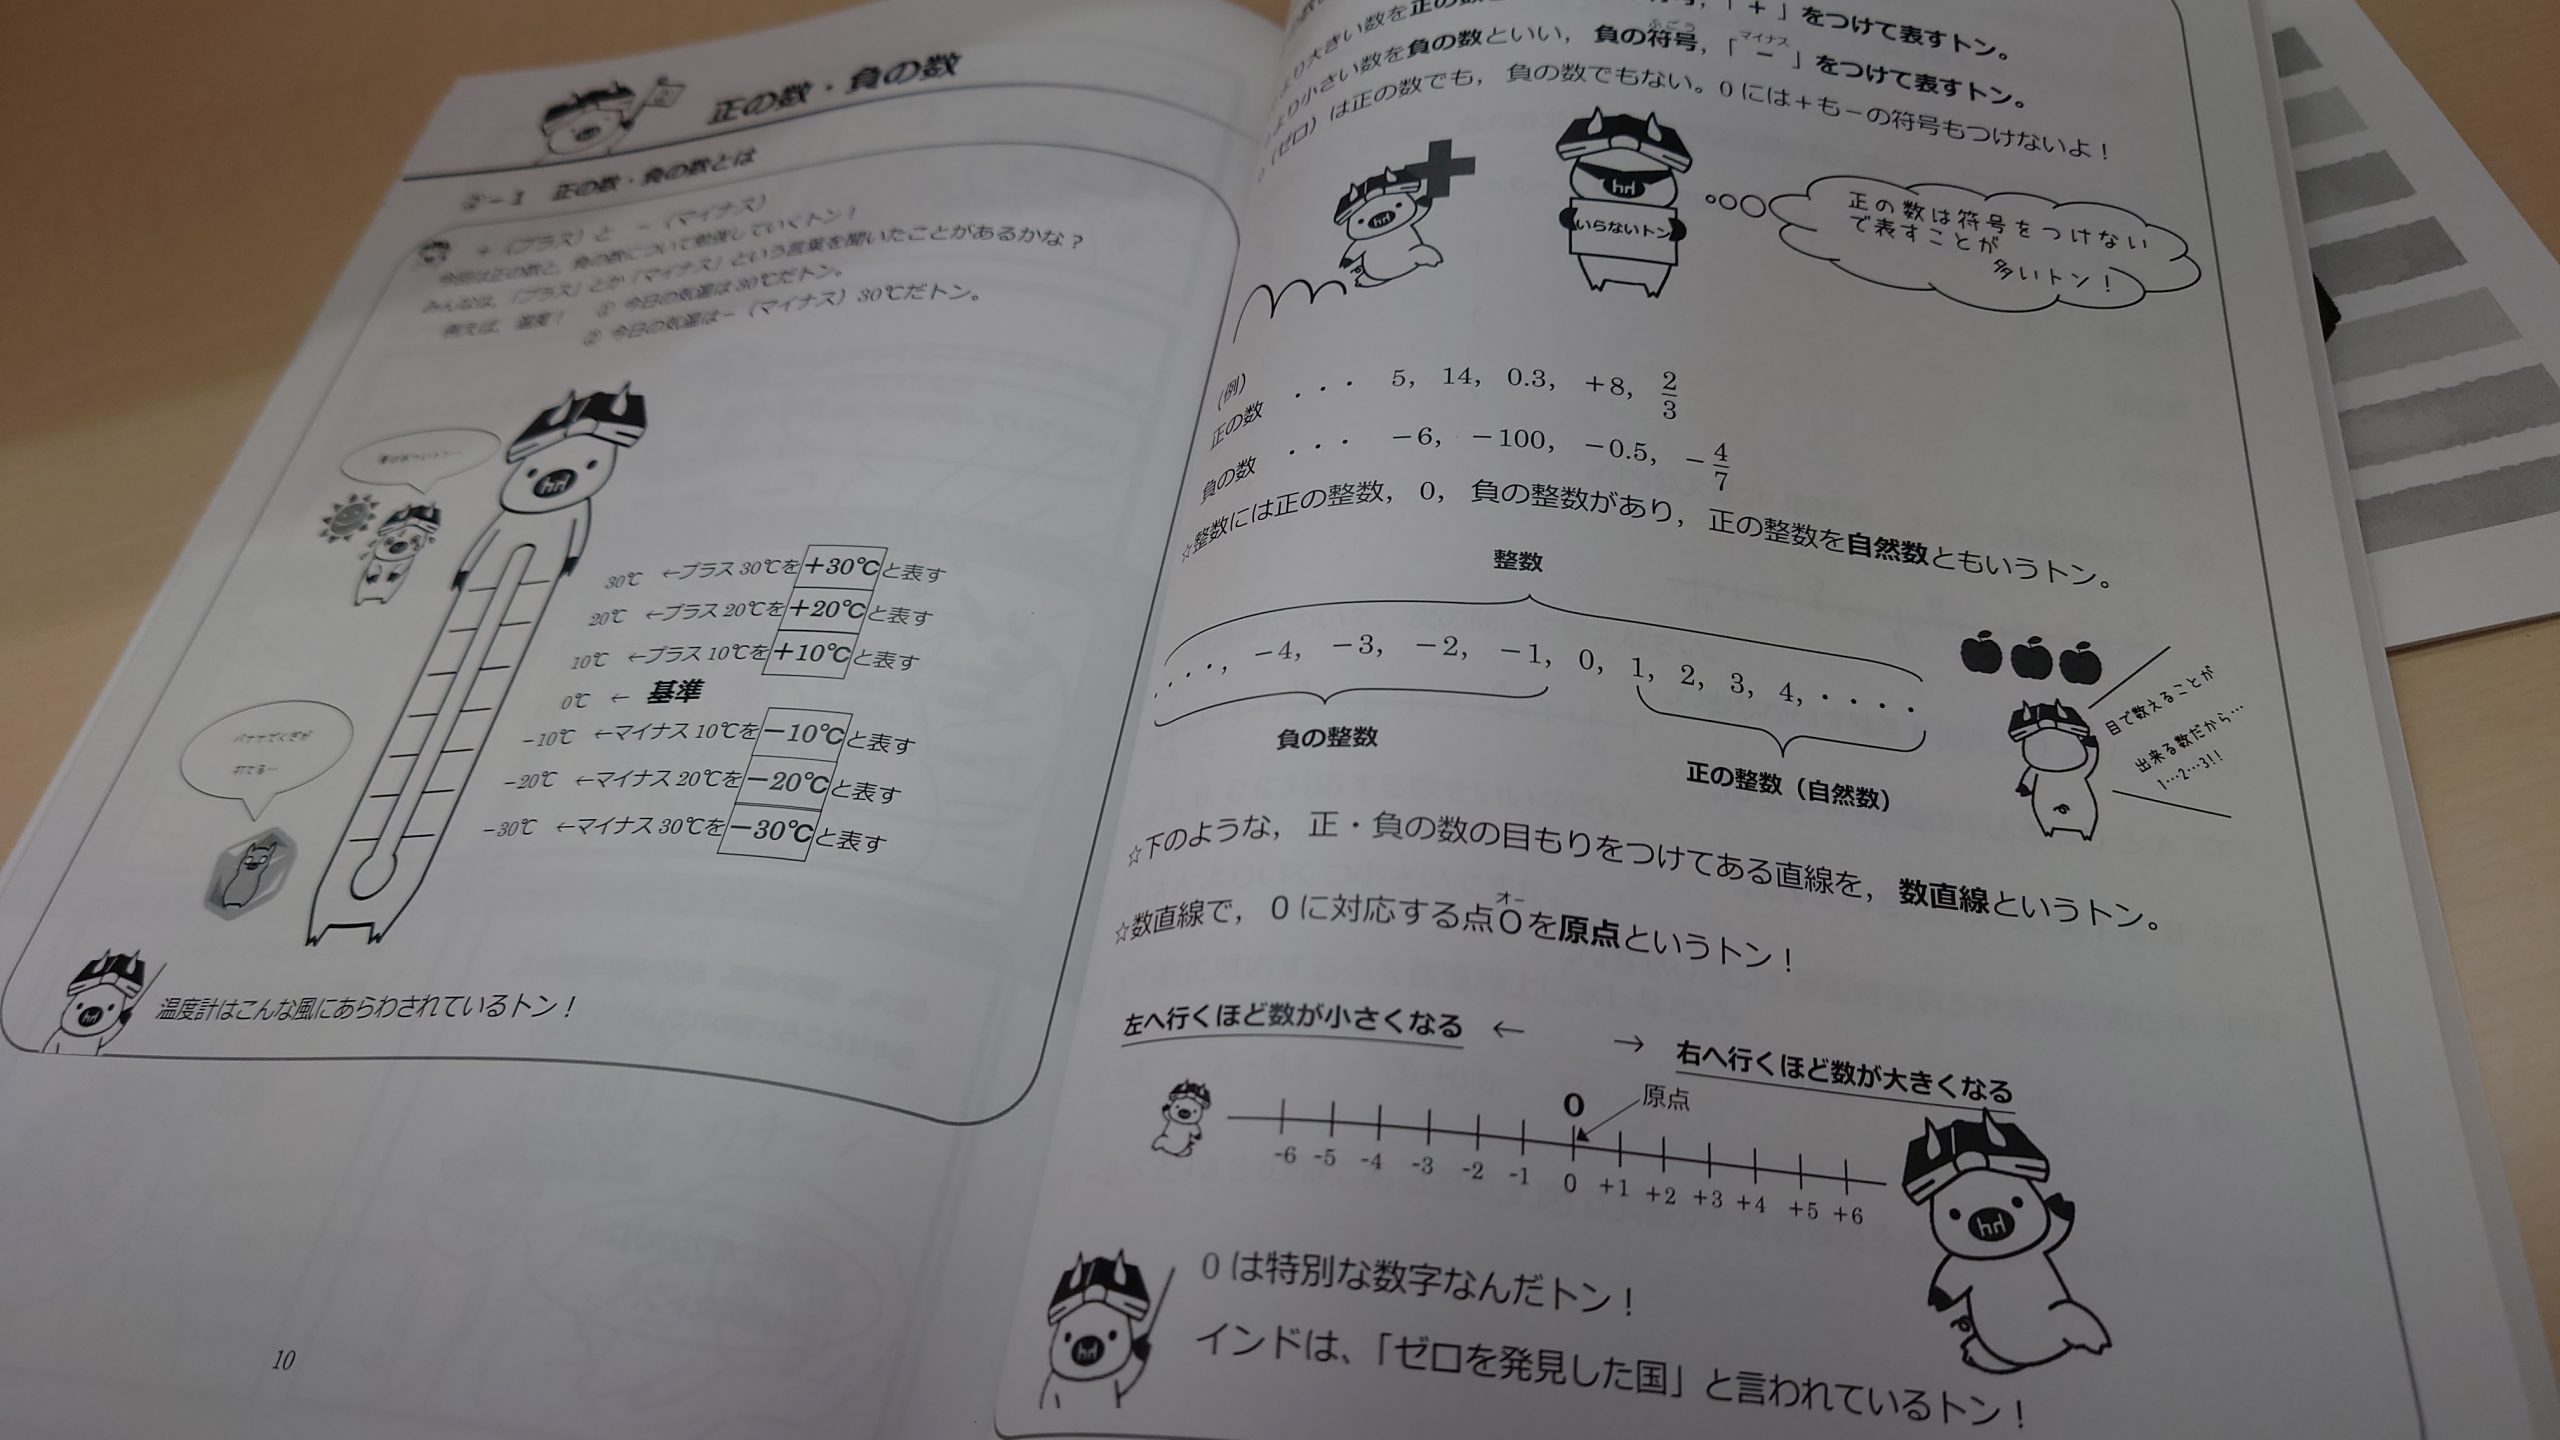 正の数・負の数
②－1　正の数・負の数とは
＋（プラス）と　－（マイナス）
今回は正の数と，負の数について勉強していくトン！
みんなは，「プラス」とか「マイナス」という言葉を聞いたことがあるかな？
例えば，温度！　① 今日の気温は30℃だトン。
② 今日の気温は－（マイナス）30℃だトン。
30℃　←プラス30℃を＋30℃と表す
20℃　←プラス20℃を＋20℃と表す
10℃　←プラス10℃を＋10℃と表す
0℃　←　基準
－10℃　←マイナス10℃を－10℃と表す
－20℃　←マイナス20℃を－20℃と表す
－30℃　←マイナス30℃を－30℃と表す
バナナでくぎが
打てる…
温度計はこんな風にあらわされているトン！
10
より大きい数を正の数　「＋」をつけて表すトン。
より小さい数を負の数といい，負の符号，「－」をつけて表すトン。
ふごう
マイナス
（ゼロ）は正の数でも，負の数でもない。0には＋も－の符号もつけないよ！
いらないトン
正の数は符号をつけない
で表すことが
多いトン！
（例）
正の数　・・・　5，14，0.3，＋8，2/3
負の数　・・・　－6，－100，－0.5，－4/7
☆整数には正の整数，0，負の整数があり，正の整数を自然数ともいうトン。
整数
・・・・，－4，－3，－2，－1，0，1，2，3，4，・・・・
負の整数
正の整数（自然数）
目で数えることが
出来る数だから…
1…2…3!!
☆下のような，正・負の数の目もりをつけてある直線を，数直線というトン。
オー
☆数直線で，0に対応する点Oを原点というトン！
左へ行くほど数が小さくなる　←　→　右へ行くほど数が大きくなる
O　原点
-6 -5 -4 -3 -2 -1 0 +1 +2 +3 +4 +5 +6
0は特別な数字なんだトン！
インドは、「ゼロを発見した国」と言われているトン！